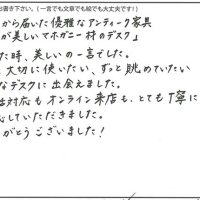 お書き下さい。（一言でも文章でも絵でも大丈夫です！）
から届いた優雅なアンティーク家具
が美しいマホガニー材のデスク」
た時、美しいの一言でした。
大切に使いたい、ずっと眺めていたい
なデスクに出会えました。
対応もオンライン来店も、とても丁寧に
していただきました。
がとうございました！